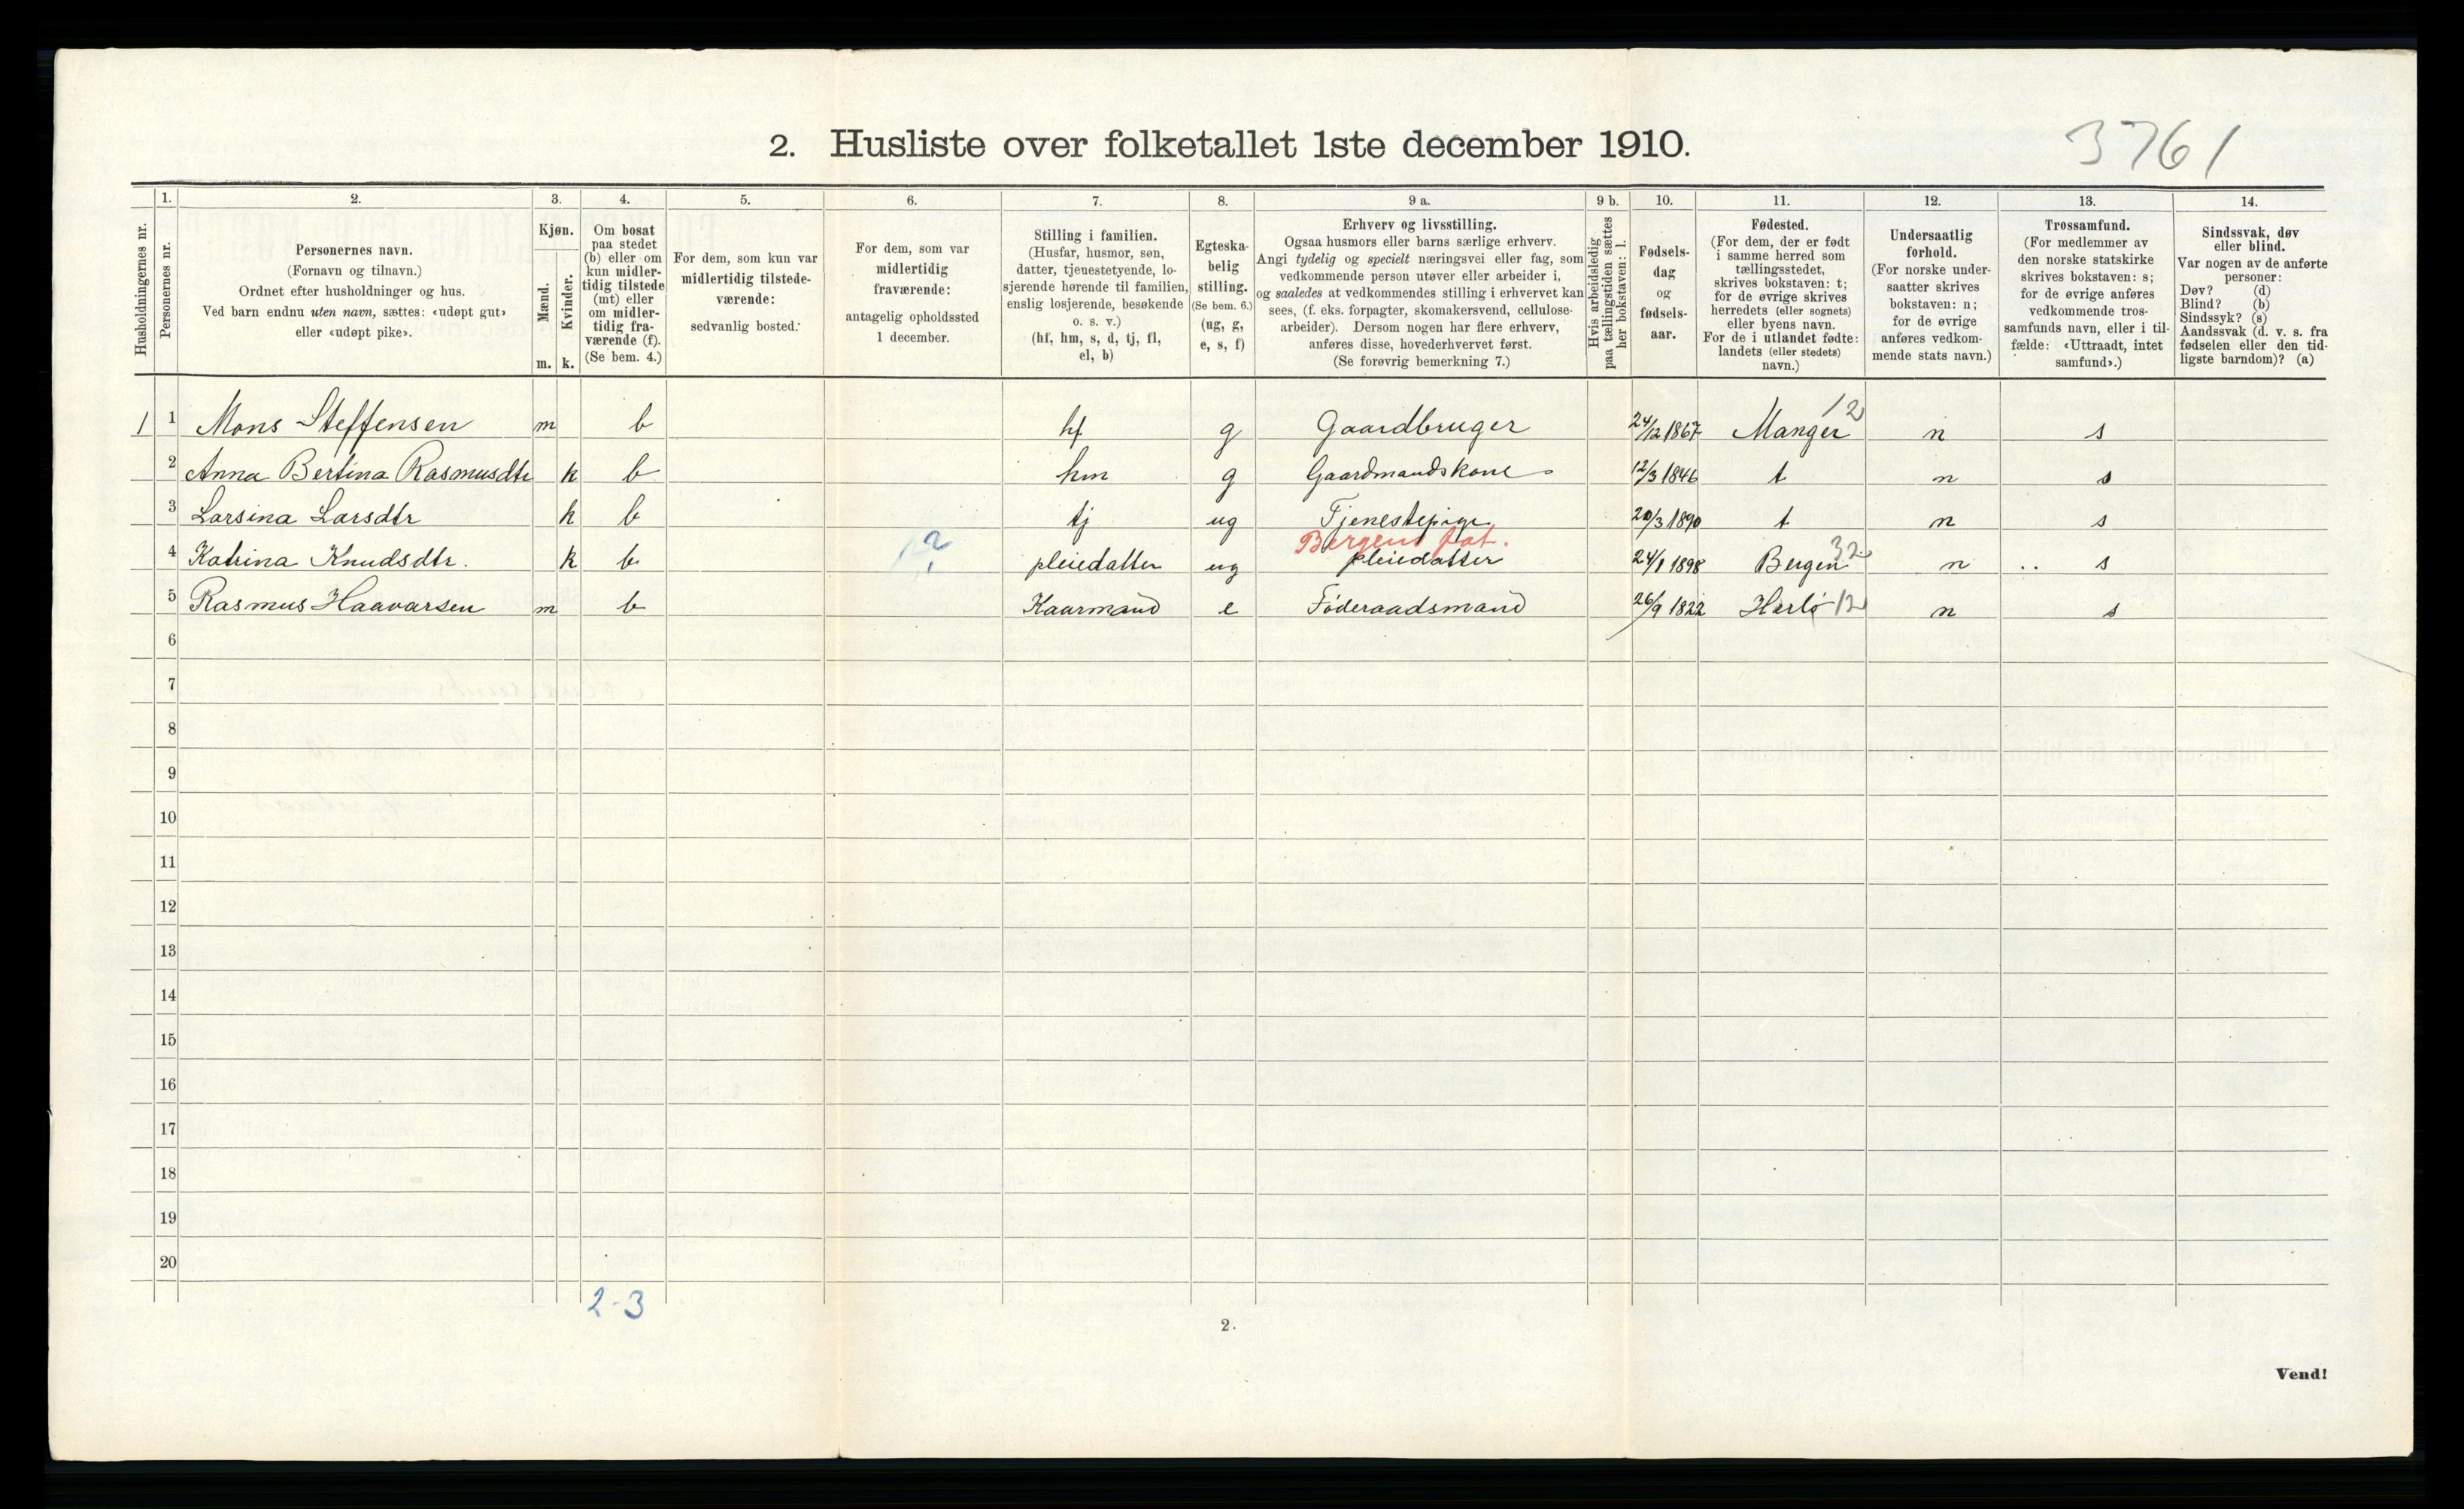 3761
2. Husliste over folketallet 1ste december 1910.
Husholdningernes nr.
1.
Personernes nr.
2.
Personernes navn.
(Fornavn og tilnavn.)
Ordnet efter husholdninger og hus.
Ved barn endnu uten navn, sættes: «udøpt gut»
eller «udøpt pike».
3.
Kjøn.
Mænd.
m.
Kvinder.
k.
4.
Om bosat
paa stedet
(b) eller om
kun midler-
tidig tilstede
(mt) eller
om midler-
tidig fra-
værende (f).
(Se bem. 4.)
5.
For dem, som kun var
midlertidig tilstede-
værende:
sedvanlig bosted.
6.
For dem, som var
midlertidig
fraværende:
antagelig opholdssted
1 december.
7.
Stilling i familien.
(Husfar, husmor, søn,
datter, tjenestetyende, lo-
sjerende hørende til familien,
enslig losjerende, besøkende
o. s. v.)
(hf, hm, s, d, tj, fl,
el, b)
8.
Egteska-
belig
stilling.
(Se bem. 6.)
(ug, g,
e, s, f)
9 a.
Erhverv og livsstilling.
Ogsaa husmors eller barns særlige erhverv.
Angi tydelig og specielt næringsvei eller fag, som
vedkommende person utøver eller arbeider i,
og saaledes at vedkommendes stilling i erhvervet kan
sees, (f. eks. forpagter, skomakersvend, cellulose-
arbeider). Dersom nogen har flere erhverv,
anføres disse, hovederhvervet først.
(Se forøvrig bemerkning 7.)
9 b.
Hvis arbeidsledig
paa tællingstiden sættes
her bokstaven: l.
10.
Fødsels-
dag
og
fødsels-
aar.
11.
Fødested.
(For dem, der er født
i samme herred som
tællingsstedet,
skrives bokstaven: t;
for de øvrige skrives
herredets (eller sognets)
eller byens navn.
For de i utlandet fødte:
landets (eller stedets)
navn.)
12.
Undersaatlig
forhold.
(For norske under-
saatter skrives
bokstaven: n;
for de øvrige
anføres vedkom-
mende stats navn.)
13.
Trossamfund.
(For medlemmer av
den norske statskirke
skrives bokstaven: s;
for de øvrige anføres
vedkommende tros-
samfunds navn, eller i til-
fælde: «Uttraadt, intet
samfund».)
14.
Sindssvak, døv
eller blind.
Var nogen av de anførte
personer:
Døv? (d)
Blind? (b)
Sindssyk? (s)
Aandssvak (d. v. s. fra
fødselen eller den tid-
ligste barndom)? (a)
1 1 Mons Steffensen m b hf g Gaardbruger 24/12 1867 Manger 12 n s
2 Anna Bertina Rasmusdtr k b hm g Gaardmandskone 12/3 1846 t n s
3 Larsina Larsdtr k b tj ug Tjenestepige 20/3 1890 t n s
Bergens fat.
4 Katrina Knudsdtr. k b pleiedatter ug pleiedatter 24/1 1898 Bergen 32 n s
5 Rasmus Haavarsen m b Kaarmand e Føderaadsmand 26/9 1822 Herlø 12 n s
6
7
8
9
10
11
12
13
14
15
16
17
18
19
20
2-3
2.
Vend!